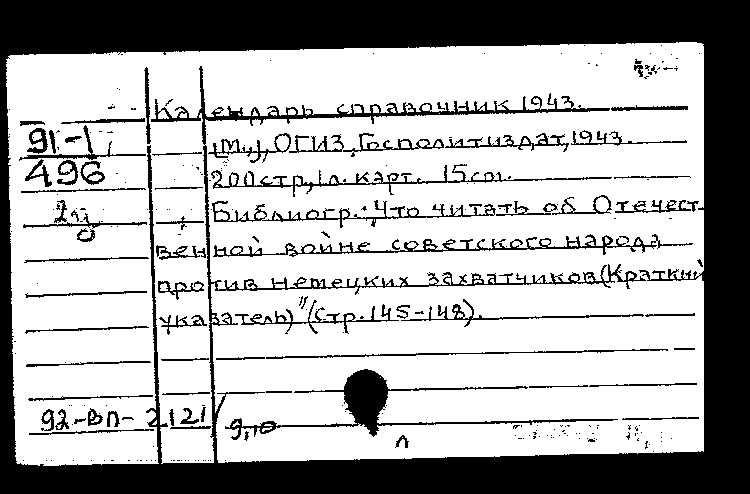 Календарь справочник 1943.
91-1
496
[М.], ОГИЗ, Госполитиздат, 1943.
200стр., 1л. карт. 15cm.
Библиогр.: „Что читать об Отечест-
венной войне советского народа
против немецких захватчиков (Краткий
указатель)" (стр. 145-148).
92-ВП-2121
л